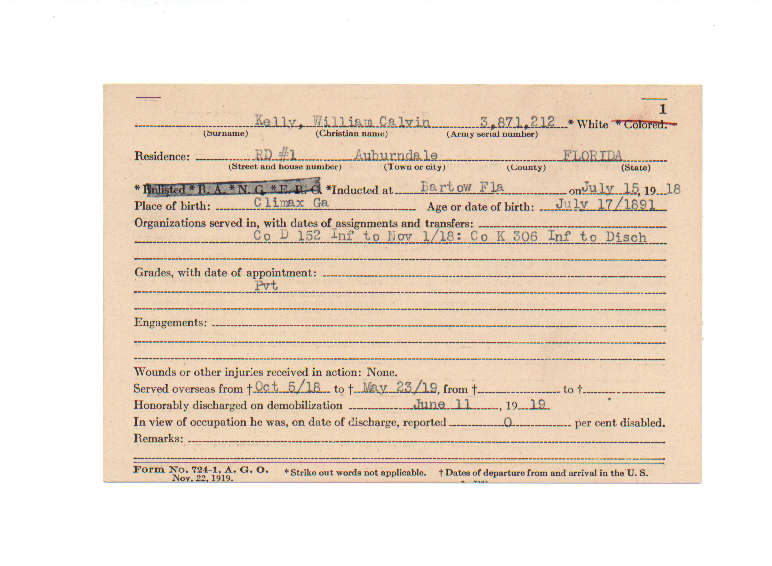 1
Kelly, William Calvin 3,871,212 *White *Colored.
(Surname) (Christian name) (Army serial number)
Residence: RD #1 Auburndale FLORIDA
(Street and house number) (Town or city) (County) (State)
*Enlisted *R. A. *N. G. *E. R. C. *Inducted at Bartow Fla on July 15, 19 18
Place of birth: Climax Ga Age or date of birth: July 17/1891
Organizations served in, with dates of assignments and transfers:
Co D 152 Inf to Nov 1/18: Co K 306 Inf to Disch
Grades, with date of appointment:
Pvt
Engagements:
Wounds or other injuries received in action: None.
Served overseas from † Oct 5/18 to † May 23/19, from † to †
Honorably discharged on demobilization June 11, 19 19.
In view of occupation he was, on date of discharge, reported 0 per cent disabled.
Remarks:
Form No. 724-1, A. G. O. *Strike out words not applicable. † Dates of departure from and arrival in the U. S.
Nov. 22, 1919.